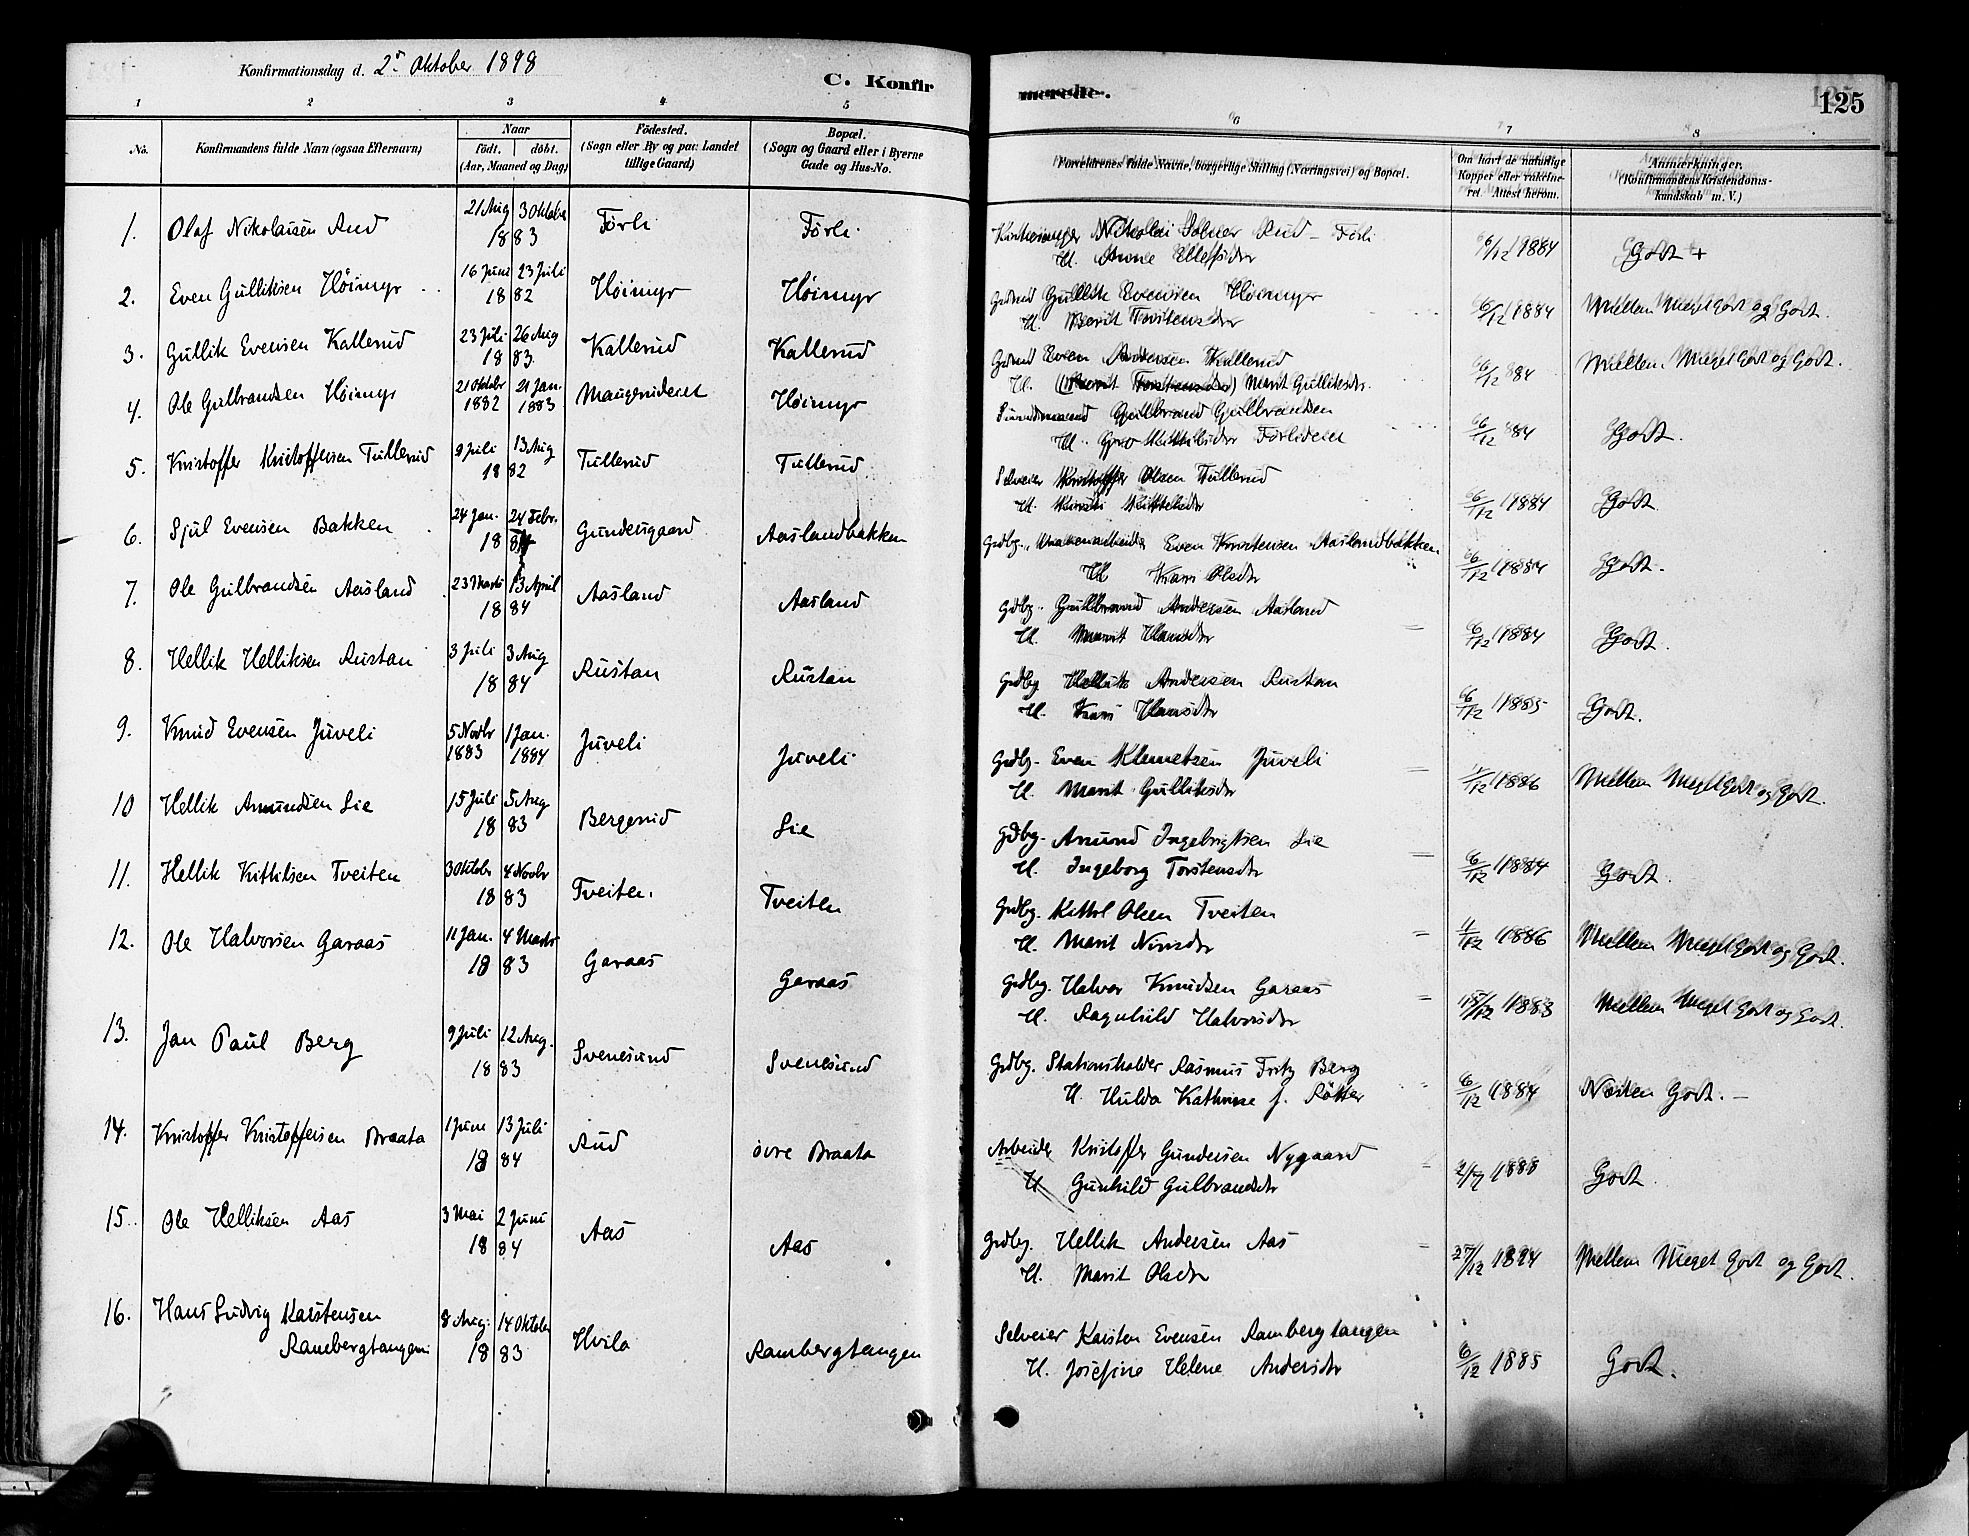 Konfirmationsdag d. 2 Oktober 1898
C. Konfir
merede.
125
1 2 3 4 5 6 7 8
No.
Konfirmandens fulde Navn (ogsaa Efternavn)
Naar
födt. döbt.
(Aar, Maaned og Dag)
Födested.
(Sogn eller By og paa Landet
tillige Gaard)
Bopæl.
(Sogn og Gaard eller i Byerne
Gade og Hus-No.
Forældrenes fulde Navne, borgerlige Stilling (Næringsvei) og Bopæl.
Om havt de naturlige
Kopper eller vakcine-
ret. Attest herom.
Anmærkninger.
(Konfirmandens Kristendoms-
kundskab m. V.)
1. Olaf Nikolaisen Rud 21 Aug 3 Oktober 1883 Førli Førli Nikolai Rud - Førli 6/12 1884 Godt +
H. Anne
2. Even Gulliksen Høimyr 16 Juni 23 Juli 1882 Høimyr Høimyr Gullik Evensen Høimyr 6/12 1884 Mellem Meget Godt og Godt.
H. Berit Torstensdtr
3. Gullik Evensen Kallerud 23 Juli 26 Aug 1883 Kallerud Kallerud Even Andersen Kallerud 6/12 884 Mellem Meget Godt og Godt.
H. Marit Gulliksdtr.
4. Ole Gulbrandsen Høimyr 21 Oktobr 1882 21 Jan. 1883 Høimyr Gulbrand Gulbrandsen 6/12 884 Godt.
H. Gro Kittilsdtr Førlideiet
5. Kristoffer Kristoffersen Tullerud 9 Juli 13 Aug 1882 Tullerud Tullerud Selveier Kristoffer Olsen Tullerud 6/12 1884 Godt.
H. Kirsti Kittilsdtr
6. Sjul Evensen Bakken 24 Jan. 24 Febr. 1884 Gundesgaard Aaslandbakken Grdbg. Even Kristensen Aaslandbakken 6/12 1884 Godt.
H Kari Olsdtr
7. Ole Gulbrandsen Aasland 23 Marts 13 April 1884 Aasland Aasland Gdbg. Gulbrand Andersen Aasland 6/12 1884 Godt.
H. Marit Hansdtr
8. Hellik Helliksen Rustan 3 Juli 3 Aug 1884 Rustan Rustan Grdbg Hellik Andersen Rustan 6/12 1885 Godt.
H. Kari Hansdtr
9. Knud Evensen Juveli 5 Novbr 1883 1 Jan. 1884 Juveli Juveli Grdbg. Even Klemetsen Juveli 1/12 1886 Mellem Meget Godt og Godt.
H. Marit Gulliksdtr
10 Hellik Amundsen Lie 15 Juli 5 Aug 1883 Bergerud Lie Gdbg. Amund Ingebrigtsen Lie 6/12 1884 Godt.
H. Ingeborg Torstensdtr
11. Hellik Kittilsen Tveiten 3 Oktobr 4 Novbr 1883 Tveiten. Tveiten Grdbg. Kittil Olsen Tveiten 1/12 1886 Mellem Meget Godt og Godt.
H. Marit Nirisdtr
12. Ole Halvorsen Garaas 11 Jan. 4 Marts 1883 Garaas Garaas Grdbg. Halvor Knudsen Garaas 15/12 1883 Mellem Meget Godt og Godt.
H. Ragnhild Halvorsdtr
13. Jan Paul Berg 9 Juli 12 Aug. 1883 Svenesund Svenesund Grdbg. Stationsholder Rasmus Fritz Berg 6/12 1884 Næsten Godt. -
H. Hulda Kathrine f. Røtter
14. Kristoffer Kristoffersen Braata 1 Juni 13 Juli 1884 Rud övre Braata Arbeider Kristoffer Gundersen Nygaard 1888 Godt
H Gunhild Gulbrandsdtr
15. Ole Helliksen Aas 3 Mai 2 Juni 1884 Aas Aas Grdbg. Hellik Andersen Aas 27/12 1894 Mellem Meget Godt og Godt.
H. Marit Olsdtr
16. Hans Ludvig Karstensen 8 Aug. 14 Oktober 1883 Hvila Rambergtangen Selveier Karsten Evensen Rambergtangen 6/12 1885 Godt.
Rambergtangen H. Josefine Helene Andersdtr